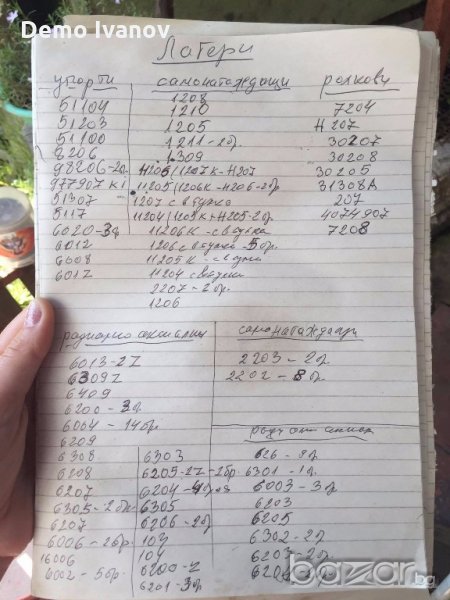 Demo Ivanov
Лагери
упорти
51104
51203
51100
8206
98206-2бр
977907 к1
51307
5117
6020-3бр
6012
6008
6017
самонагаждащи
1208
1210
1205
1211-2бр.
1309
H206/1207к-H207
11205/1206к-H206-2бр.
1207 с втулка
11204/1205к+H205-2бр.
11206к-с втулка
1206 с втулка-5бр.
11205к-с втулка
11204 с втулка
2207-2бр.
1206
ролкови
7204
H207
30207
30208
30205
31308A
207
4074907
7208
радиално аксиални
6013-2Z
6309Z
6409
6200-3бр.
6004-14бр.
6209
6308
6208
6207
6305-2бр.
6207
6006-2бр.
16006
6002-5бр.
6303
6205-2Z-2бр.
6204-4бр.
6305
6206-2бр
104
104
6200-2
6201-3бр.
самонагаждащи
2203-2бр.
2202-8бр.
626-8бр.
6301-1бр.
6003-3бр.
6203
6205
6302-2бр.
6207-2бр.
базар.bg